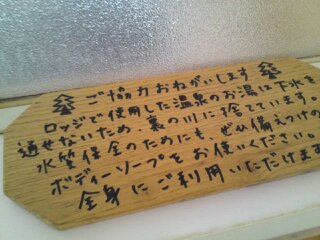 ご協力おねがいします
ロッジで使用した温泉のお湯は下水を
通せないため、裏の川に捨てています。
水質保全のためにも、ぜひ備えつけの
ボディーソープをお使いください。
全身にご利用いただけます